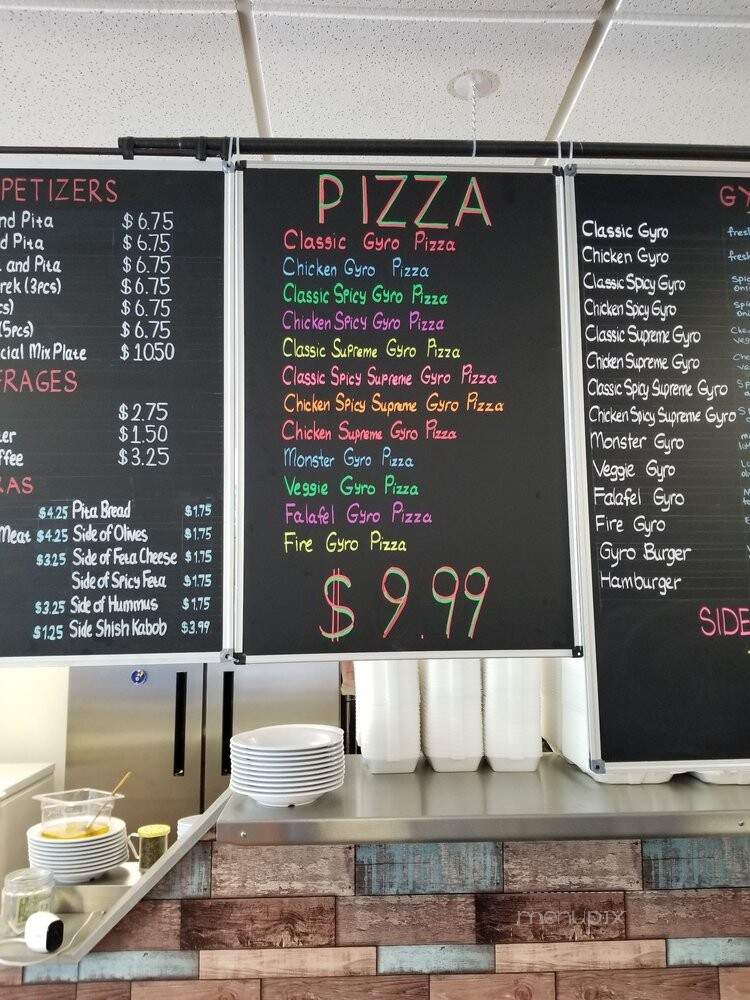 PETIZERS
nd Pita $6.75
d Pita $6.75
and Pita $6.75
rek (3pcs) $6.75
cs) $6.75
(5pcs) $6.75
cial Mix Plate $10.50
RAGES
$2.75
er $1.50
ffee $3.25
RAS
$4.25 Pita Bread $1.75
Meat $4.25 Side of Olives $1.75
$3.25 Side of Feta Cheese $1.75
Side of Spicy Feta $1.75
$3.25 Side of Hummus $1.75
$1.25 Side Shish Kabob $3.99
PIZZA
Classic Gyro Pizza
Chicken Gyro Pizza
Classic Spicy Gyro Pizza
Chicken Spicy Gyro Pizza
Classic Supreme Gyro Pizza
Classic Spicy Supreme Gyro Pizza
Chicken Spicy Supreme Gyro Pizza
Chicken Supreme Gyro Pizza
Monster Gyro Pizza
Veggie Gyro Pizza
Falafel Gyro Pizza
Fire Gyro Pizza
$9.99
GY
Classic Gyro fres
Chicken Gyro fres
Classic Spicy Gyro
Chicken Spicy Gyro
Classic Supreme Gyro
Chicken Supreme Gyro
Classic Spicy Supreme Gyro
Chicken Spicy Supreme Gyro
Monster Gyro
Veggie Gyro
Falafel Gyro
Fire Gyro
Gyro Burger
Hamburger
SIDE
menupix